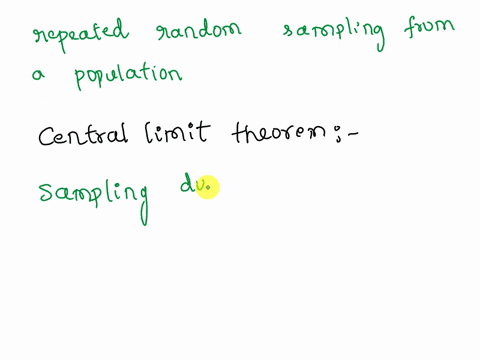 repeated random sampling from
a population
Central limit theorem:-
Sampling